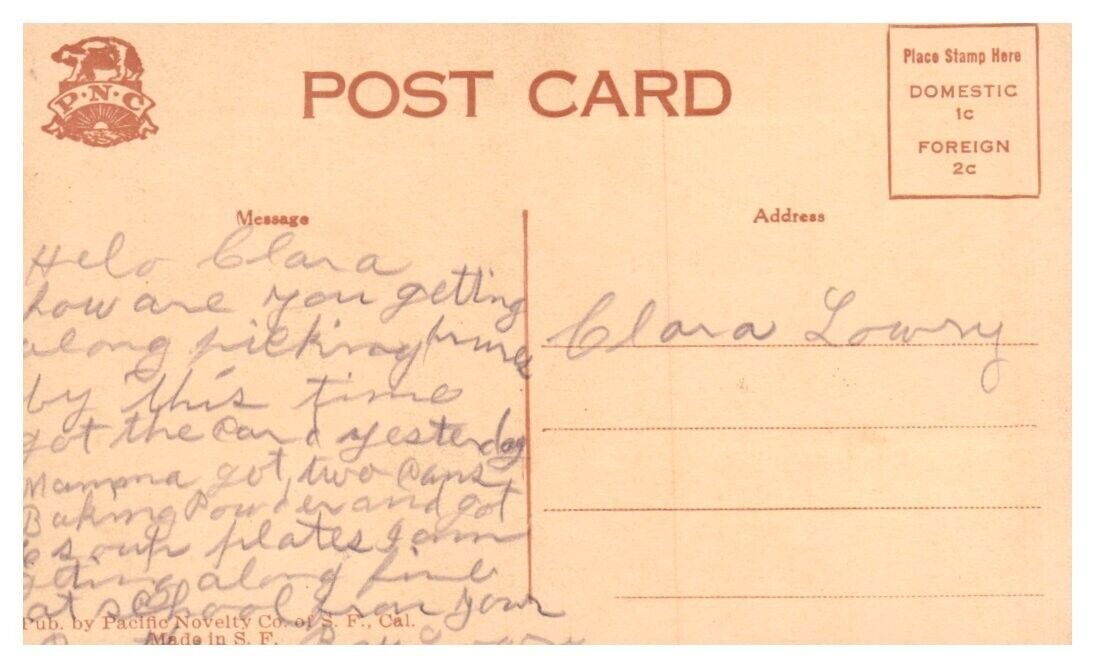 P·N·C
POST CARD
Place Stamp Here
DOMESTIC
1c
FOREIGN
2c
Message
Address
Helo Clara
how are you getting
along picking prunes
by this time
got the card yesterday
Mamma got two cans
Baking Powder and got
6 soup plates I am
geting along fine
at school from your
Clara Lowry
Pub. by Pacific Novelty Co. of S. F., Cal.
Made in S. F.